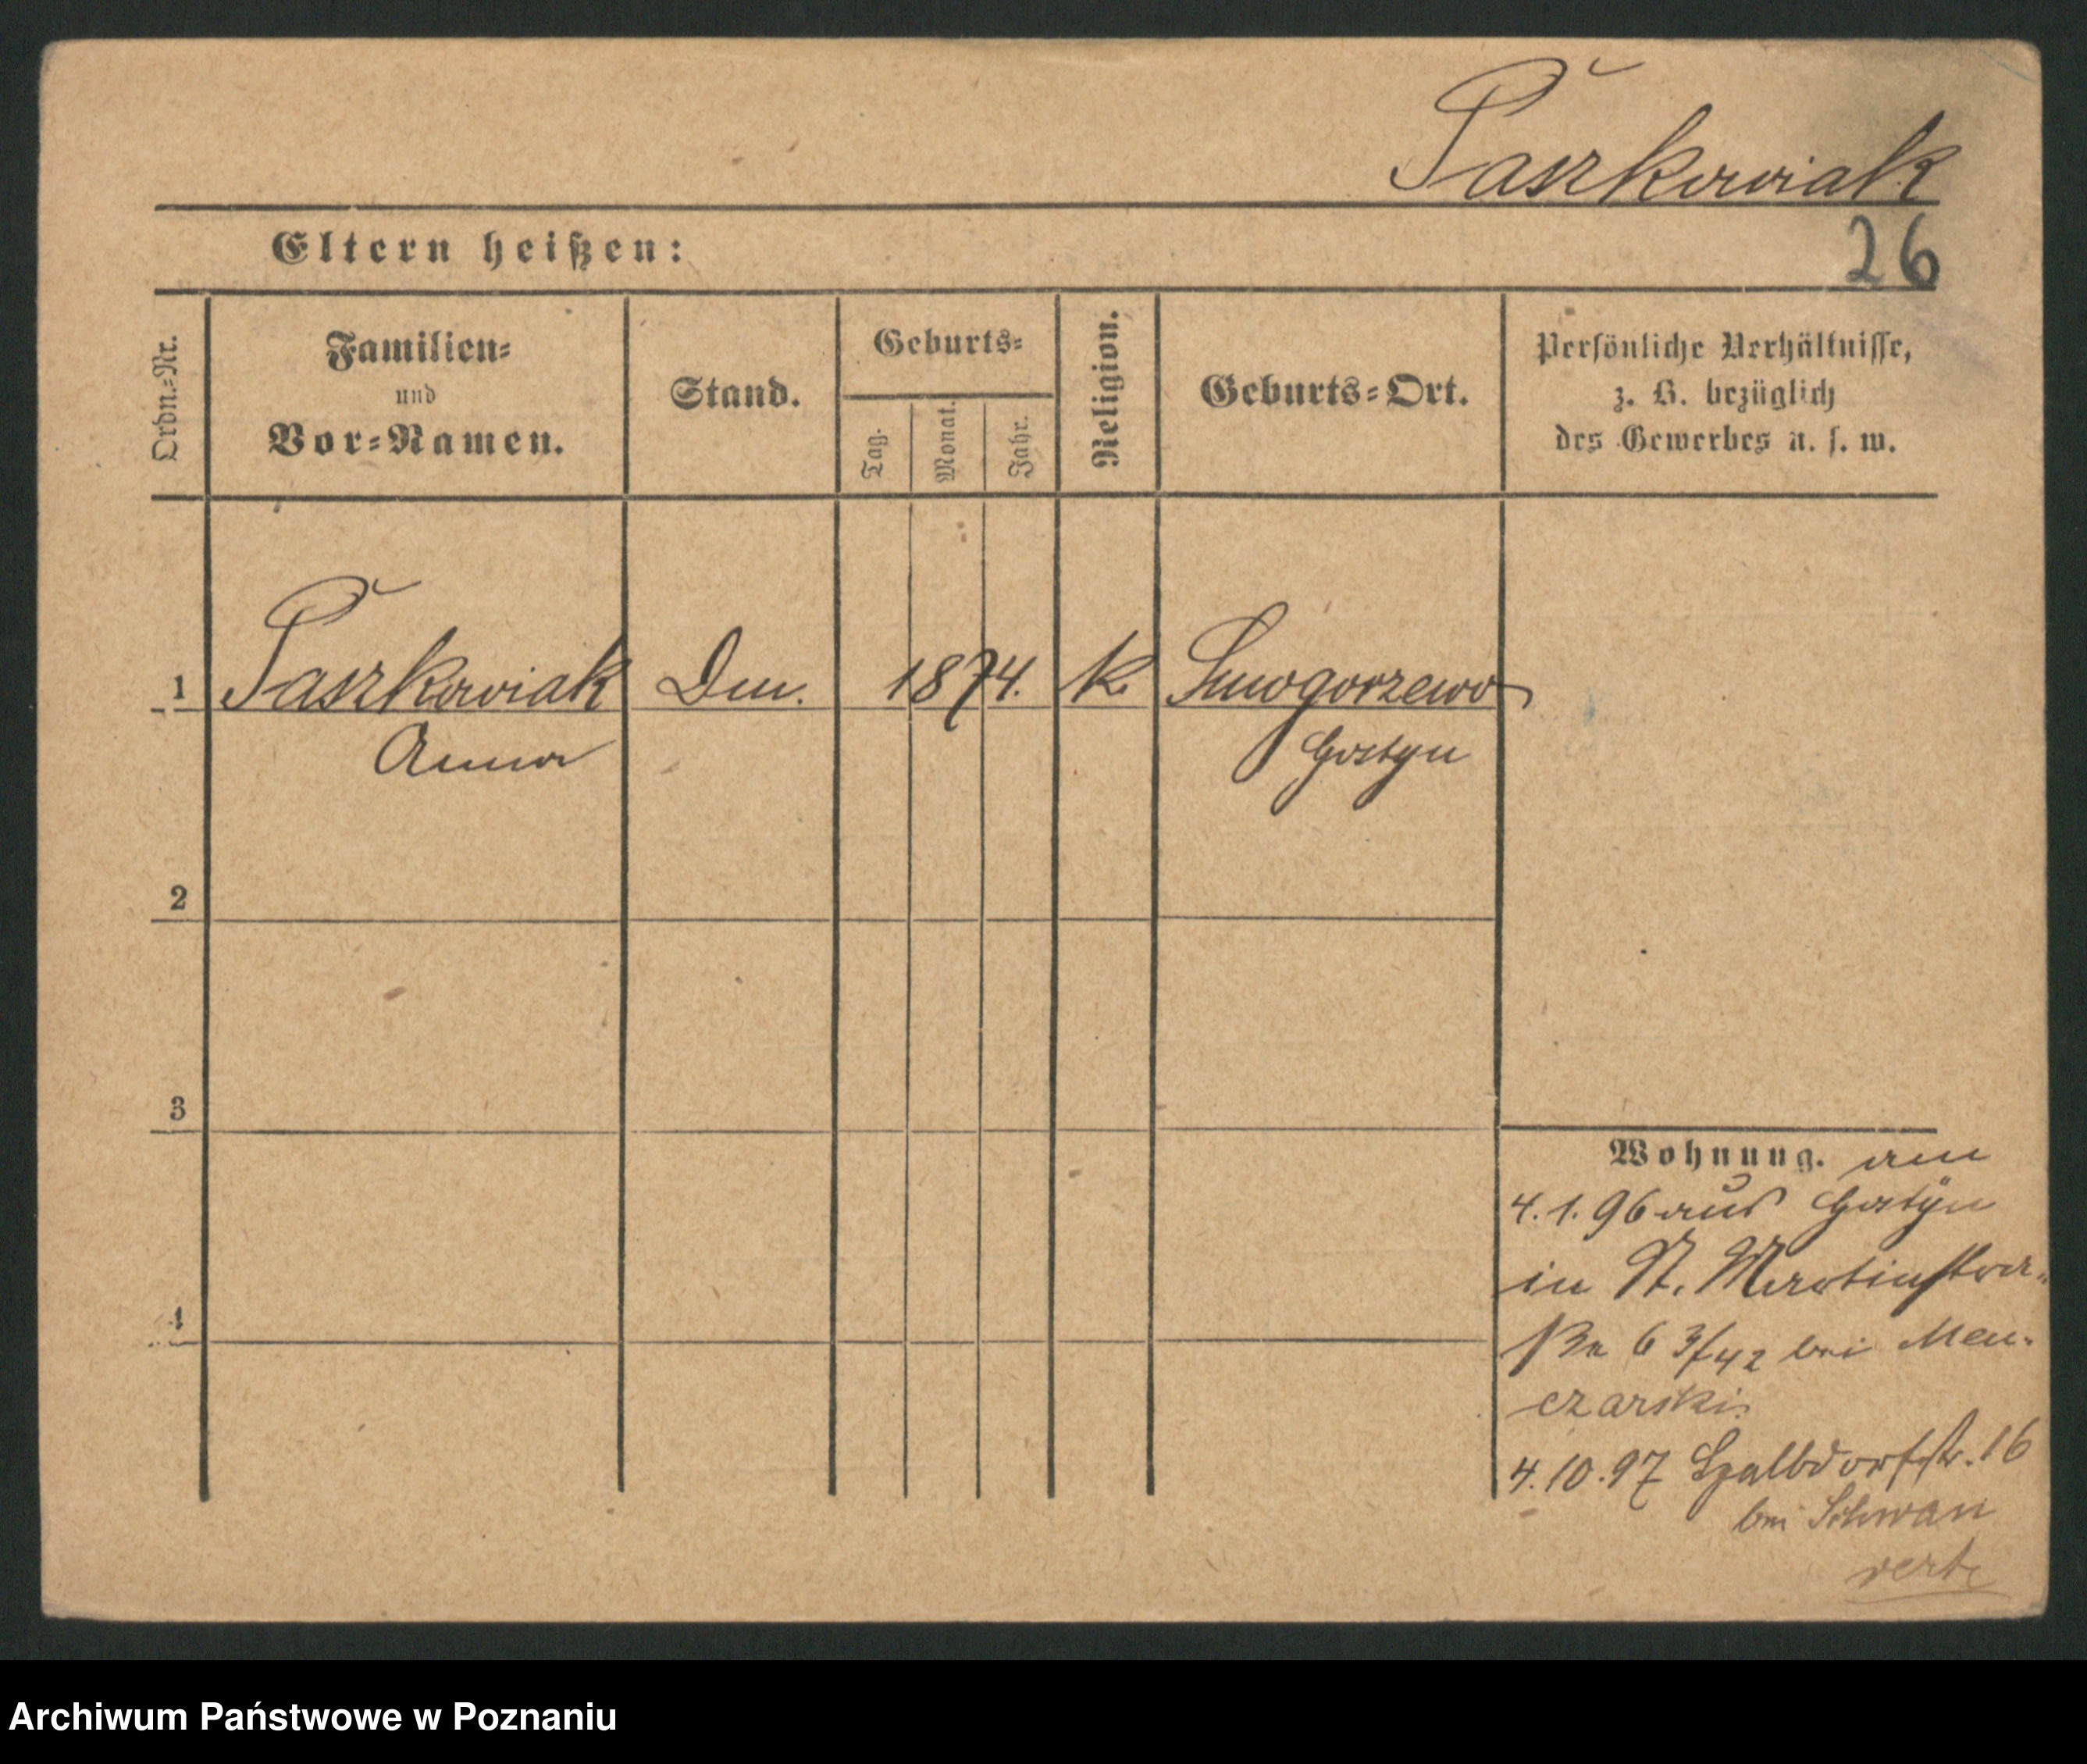 Paszkowiak
Eltern heißen:
26
Ordn.=Nr.
Familien=
und
Vor=Namen.
Stand.
Geburts=
Tag.
Monat.
Jahr.
Religion.
Geburts=Ort.
Persönliche Verhältnisse,
z. B. bezüglich
des Gewerbes u. s. w.
1 Paszkowiak 1874. k.
Anna
Gostyn
2
3
4
Wohnung. am
4.1.96 aus Gostyn
in St. Martinstra-
ße 6 3/42 bei Men-
czarski.
4.10.97 str. 16
bei Schwan
verte
Archiwum Państwowe w Poznaniu